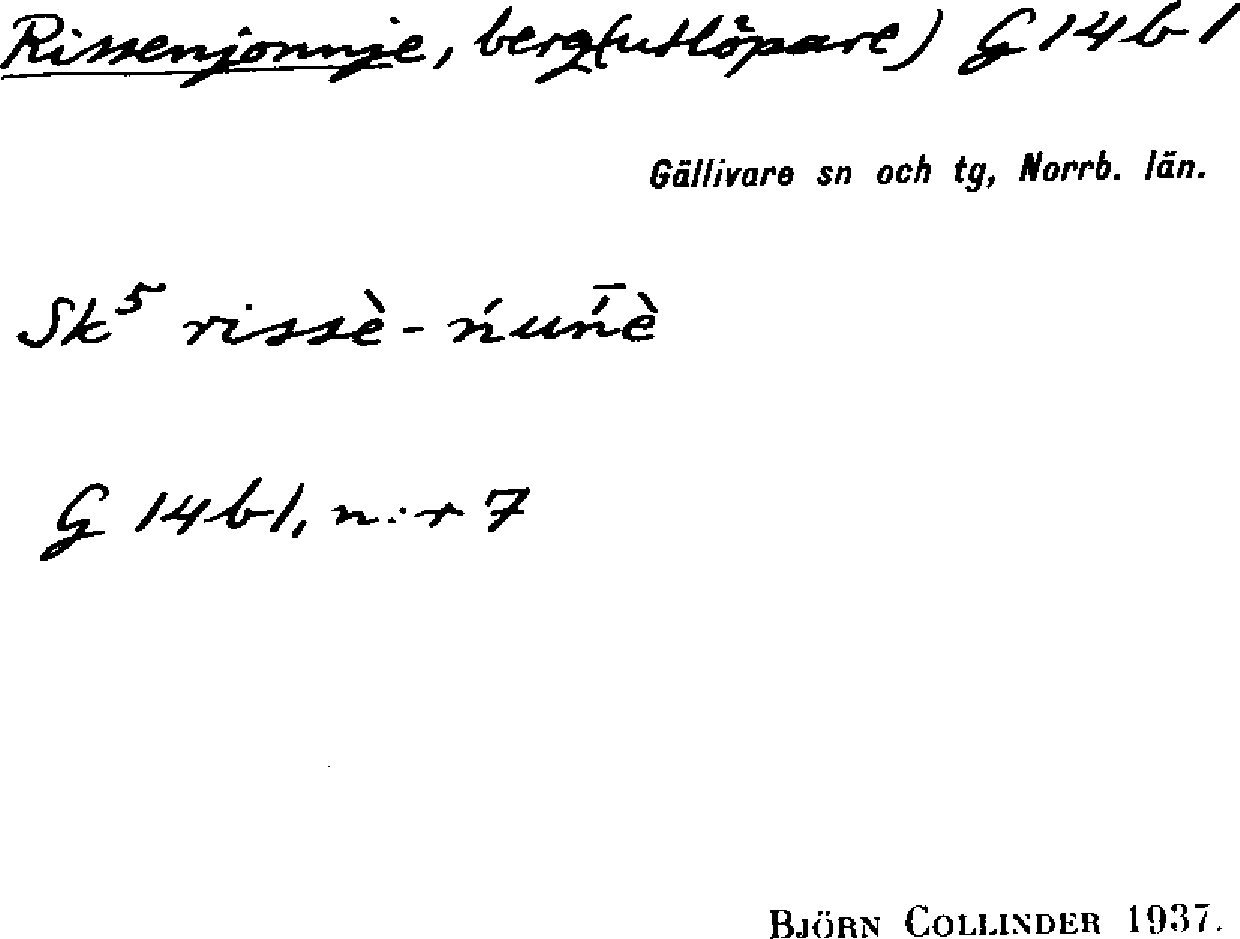 Rissenjonnje, berg(utlöpare) G 14 b 1
Gällivare sn och tg, Norrb. län.
Sk⁵ rissè-ńuń̄è
G 14 b 1, n:r 7
BJÖRN COLLINDER 1937.